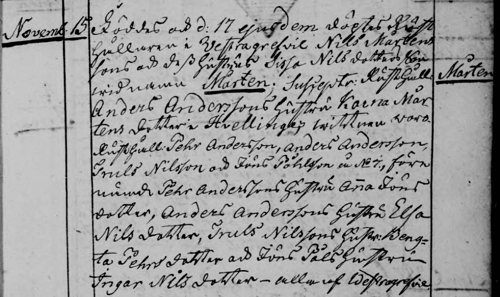 Novemb. 15 Föddes och d: 17 ejusdem döptes Rust
hållaren i Vestragrefvie Nils Mårtens
sons och dess hustrus Sissa Nils dotters Son
vid namn Mårten. Susceptr: Rusthåll: Mårten
Anders Anderssons hustru Karna Mår
tens dotter i Hvellinge; vittnen voro
Rusthåll: Pehr Andersson, Anders Andersson,
Truls Nilsson och Jöns Påhlsson u N: 7, förr
nämde Pehr Anderssons hustru Anna Jöns
dotter, Anders Anderssons hustru Elsa
Nils dotter, Truls Nilssons hustr: Beng-
ta Pehrs dotter och Jöns Påls hustru
Ingar Nils dotter – alla af Westragrefvie